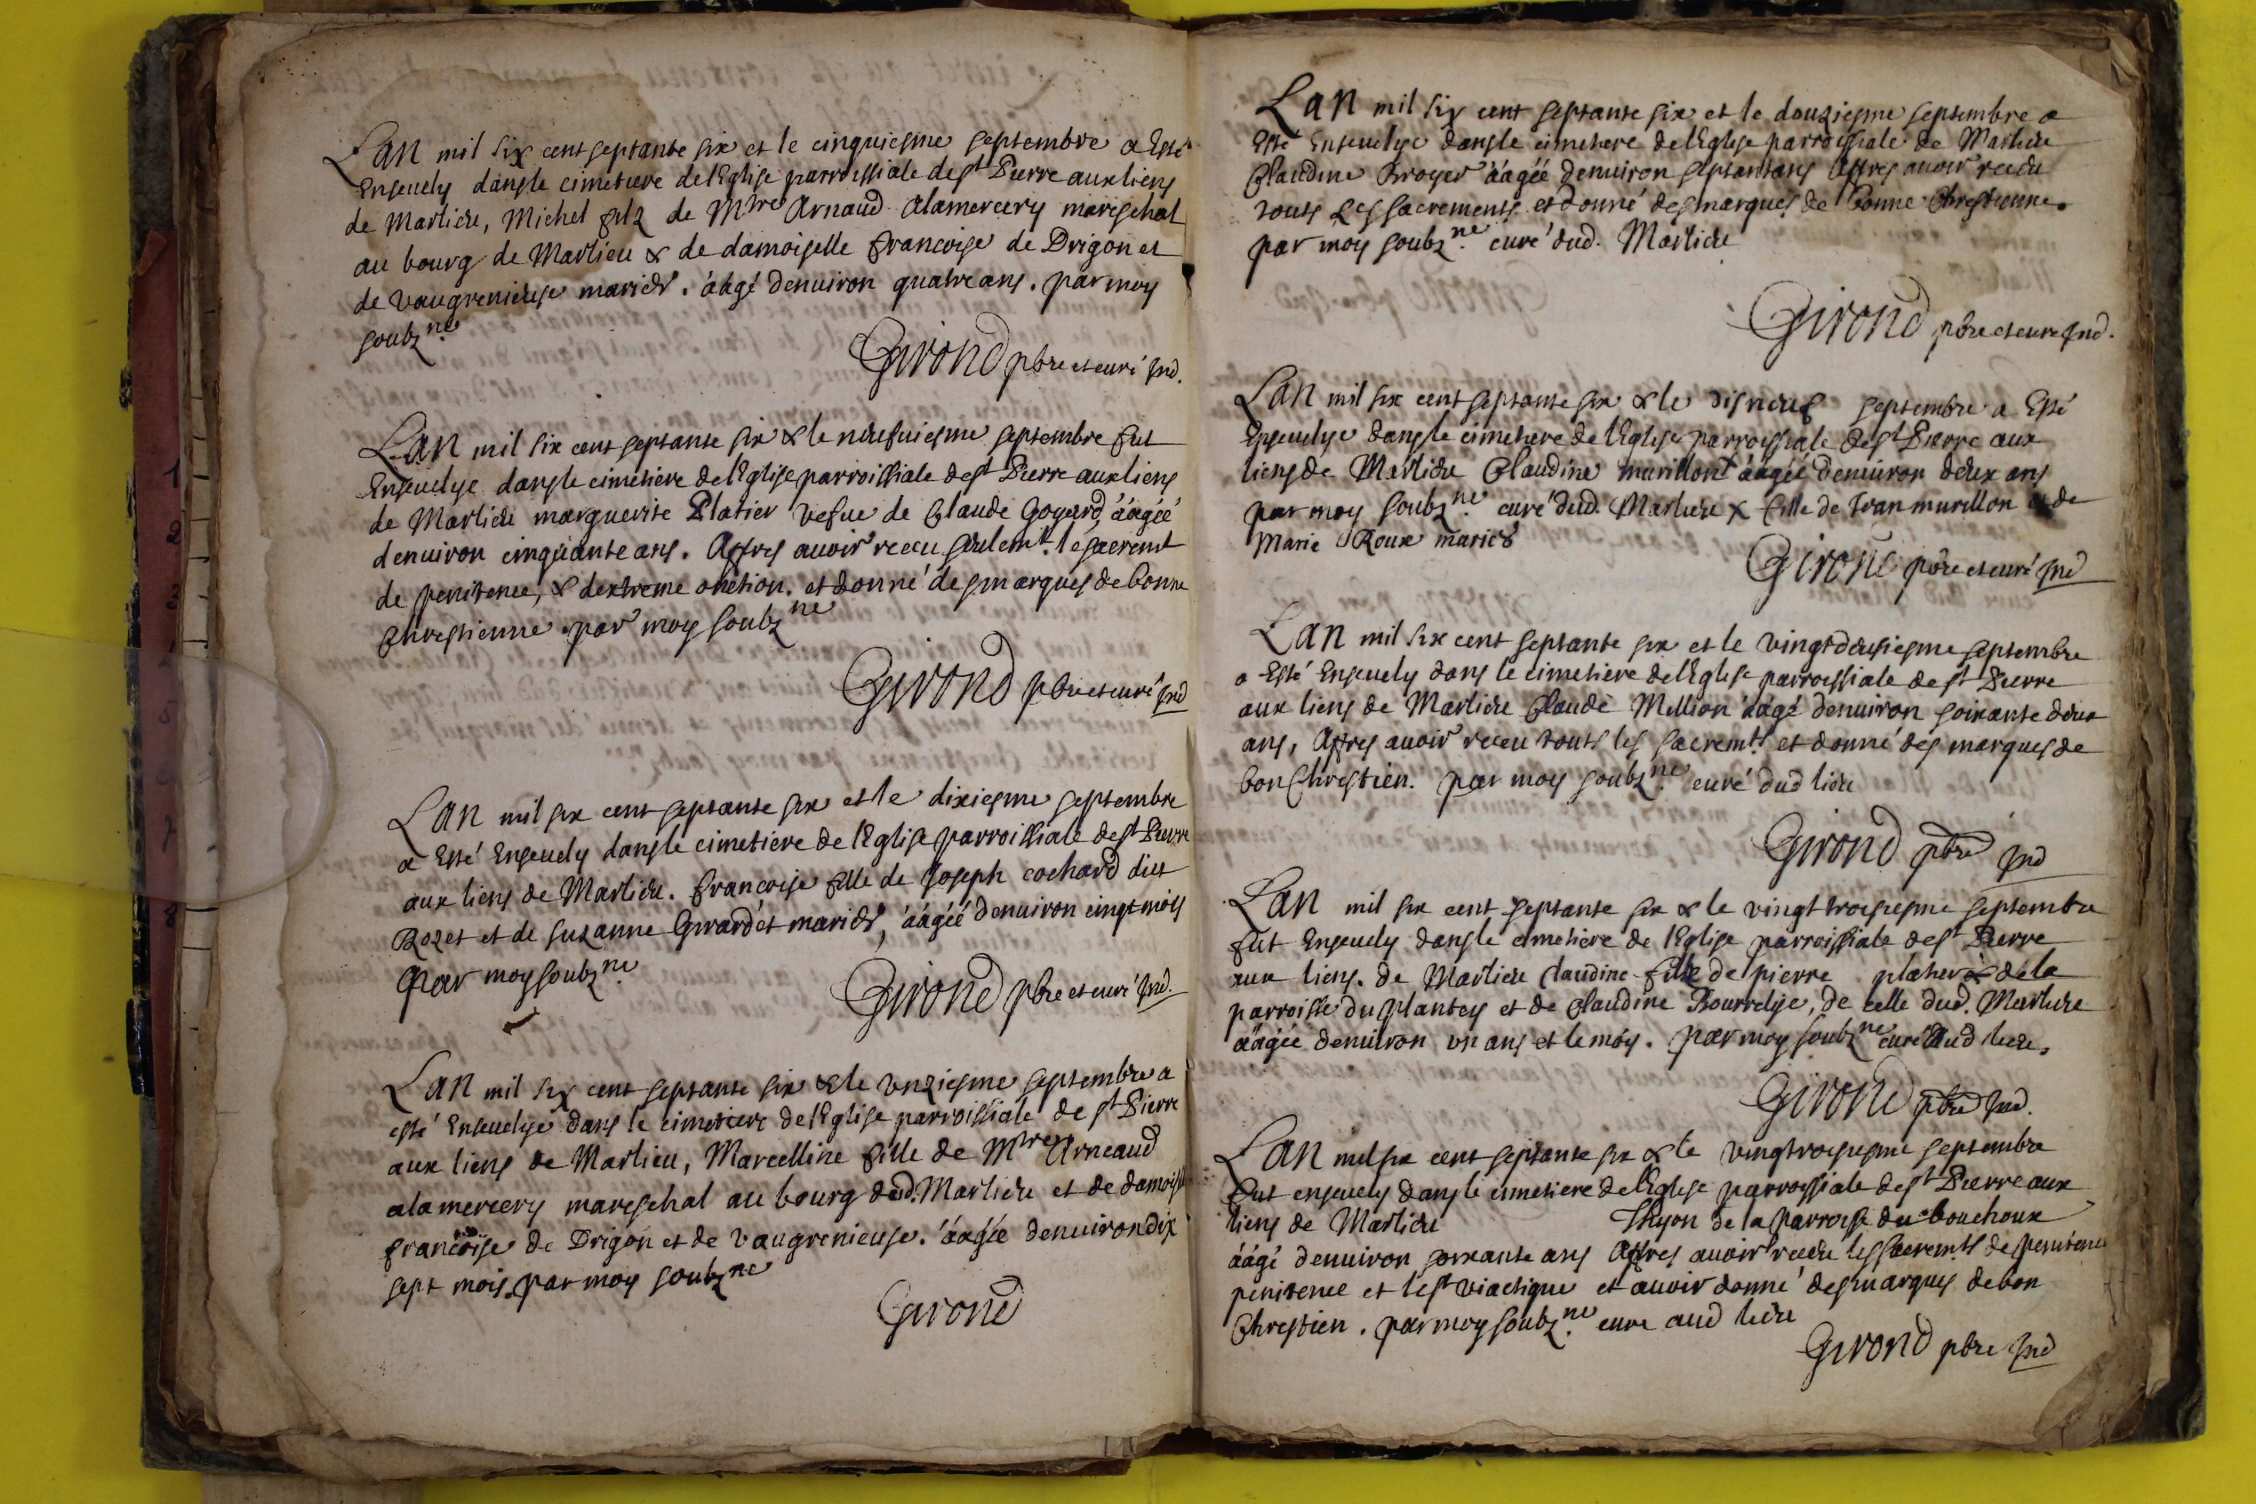 Lan mil six cent septante six et le cinquiesme septembre a Esté
Ensevely dansle cimetiere de lEglise parroissiale de st Pierre aux liens
de Marlieu, Michel filz de Mtre Arnaud alamercery mareschal
au bourg de Marlieu & de damoiselle francoise de Drigon et
de vaugrenieuse mariés. áàgé denuiron quatre ans. par moy
soubzne.
Girond pbre et curé Ind.
Lan mil six cent septante six & le neufuiesme septembre fut
Enseuelye dansle cimetiere de lEglise parroissiale de st Pierre aux liens
de Marlieu marguerite Platier vefue de Claude Goyard, áàgéé
denuiron cinquante ans. Apres auoir receu seulemt. le sacremt
de penitence, & dextreme onction. et donné des marques de bonne
Chrestienne par moy soubzne
Girond pbre et curé Ind
Lan mil six cent septante six et le dixiesme septembre
a Esté Enseuely dansle cimetiere de lEglise parroissiale de st Pierre
aux liens de Marlieu. francoise fille de Joseph cochard dict
Rozet et de suzanne Girardet mariés, áàgéé denuiron cinqt mois
par moy soubzne.
Girond pbre et curé Ind.
Lan mil six cent septante six & le vnziesme septembre a
esté Enseuelye dans le cimetiere de lEglise parroissiale de st Pierre
aux liens de Marlieu, Marcelline fille de Mtre Arneaud
alamercery mareschal au bourg dud. Marlieu et de damois
francoise de Drigon et de vaugrenieuse. áàgéé denuiron dix
sept mois. par moy soubzne
Girond
Lan mil six cent septante six et le douziesme septembre a
Esté Enseuelye dansle cimetiere de lEglise parroissiale de Marlieu
Claudine Broyer áàgéé denuiron septantans Apres auoir receu
touts Les sacrements et donné des marques de bonne Chrestienne.
par moy soubzne. curé dud. Marlieu
Girond pbre et curé Ind.
Lan mil six cent septante six & le disneuf septembre a Esté
Enseuelye dansle cimetiere de lEglise parroissiale de st Pierre aux
liens de Marlieu Claudine murillont áàgéé denuiron deux ans
par moy soubzne. curé dud. Marlieu & fille de Jean murillon & de
Marie Roux mariés
Girond pbre et curé Ind
Lan mil six cent septante six et le vingtdeusiesme septembre
a Esté Enseuely dans le cimetiere de lEglise parroissiale de st Pierre
aux liens de Marlieu Claude Million áàgé denuiron soixante deux
ans, Apres auoir receu touts les sacremts. et donné des marques de
bon Chrestien. par moy soubzne. curé dud lieu
Girond pbre Ind
Lan mil six cent septante six & le vingt troisiesme septembre
fut Enseuely dansle cimetiere de lEglise parroissiale de st Pierre
aux liens. de Marlieu Claudine fille de pierre de la
parroisse du plantey et de Claudine Bourrelye, de celle dud. Marlieu
áàgéé denuiron vn ans et le mois. par moy soubzne curé dud lieu.
Girond pbre Ind.
Lan mil six cent septante six & le vingtroisiesme septembre
fut enseuely dansle cimetiere de lEglise parroissiale de st Pierre aux
liens de Marlieu Thyon de la parroisse du bouchoux
áàgé denuiron soixante ans Apres auoir receu les sacremts de penitence
penitence et le st viactique et auoir donné des marques de bon
Chrestien. par moy soubzne. curé aud lieu
Girond pbre Ind